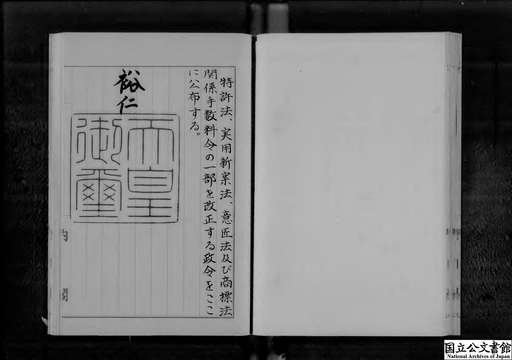 特許法、実用新案法、意匠法及び商標法
関係手数料令の一部を改正する政令をここ
に公布する。
裕仁
天皇
御璽
内閣
国立公文書館
National Archives of Japan